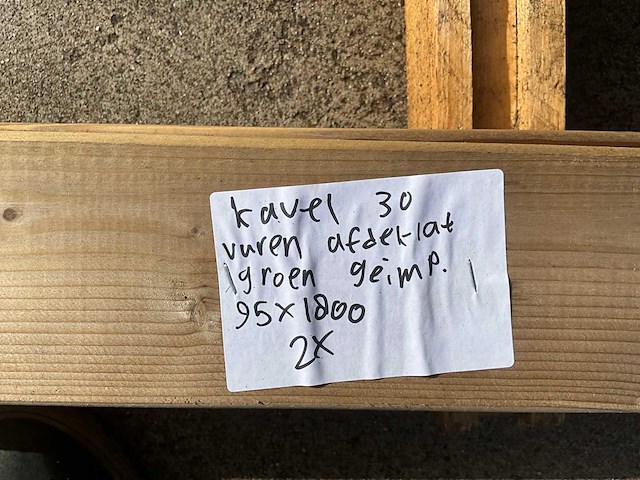 kavel 30
vuren afdeklat
groen geimp.
95x1800
2x